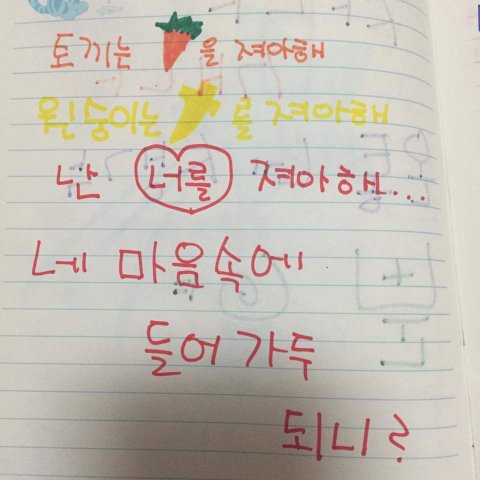 토끼는 를 져아해
원숭이는 를 져아해
난 너를 져아해...
네 마음속에
들어가두
되니?